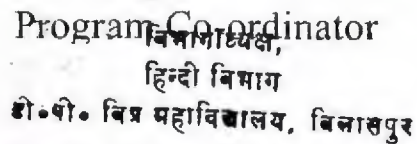 Program Co-ordinator
विभागाध्यक्ष,
हिन्दी विभाग
डी॰पी॰ विप्र महाविद्यालय, बिलासपुर